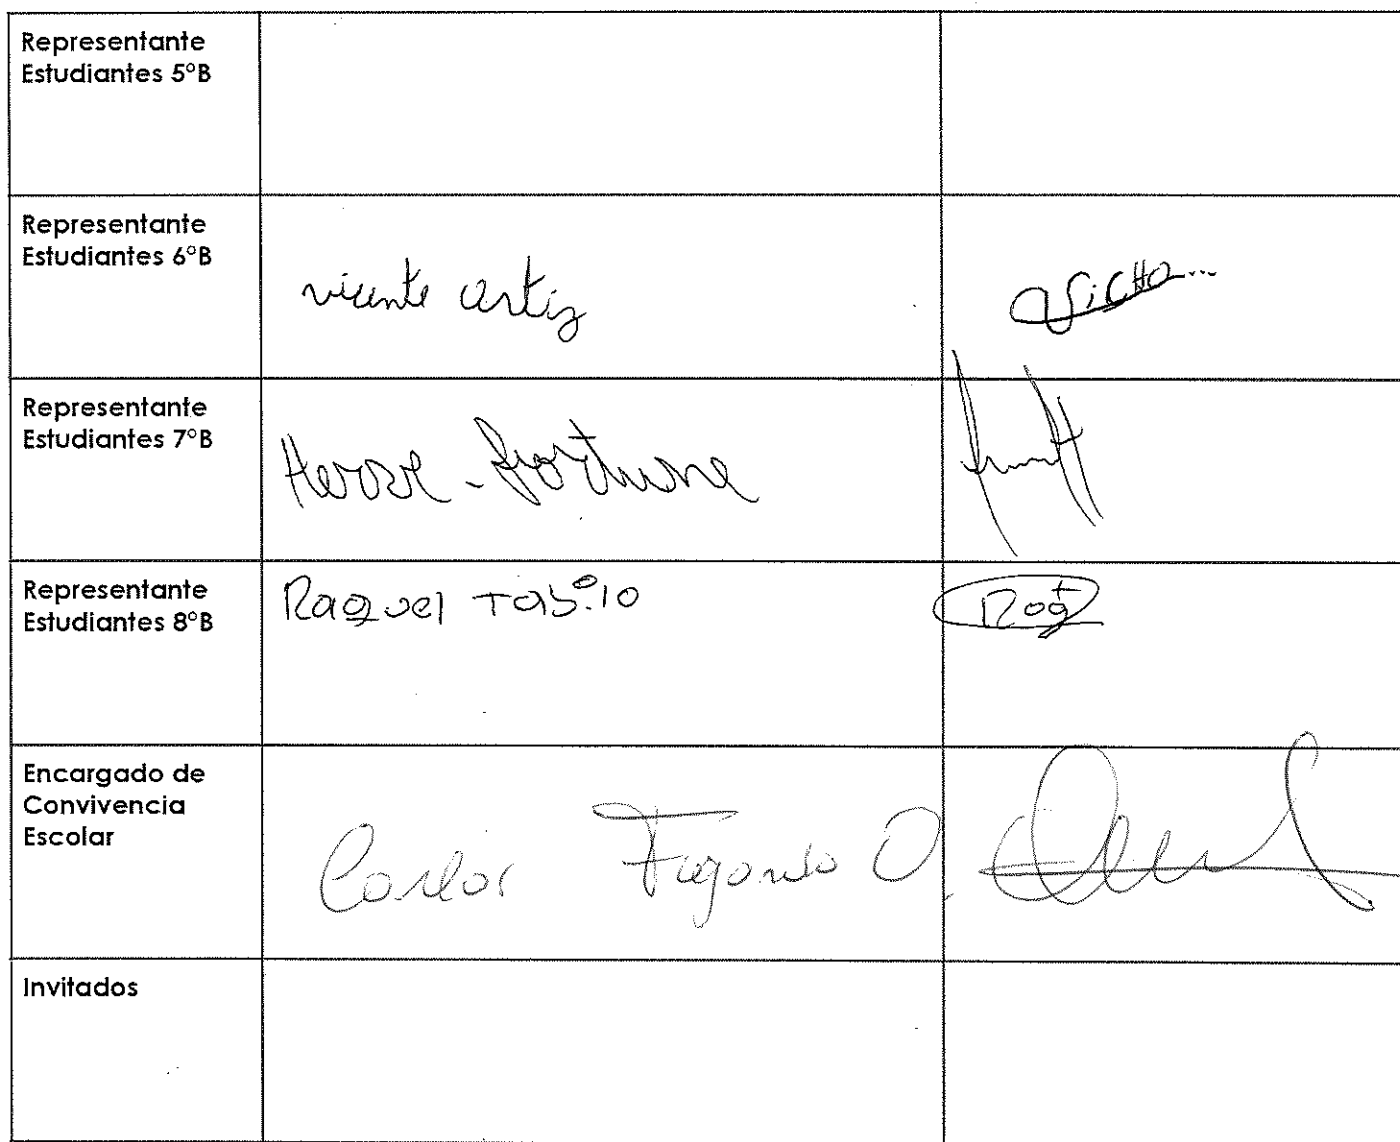 Representante
Estudiantes 5°B
Representante
Estudiantes 6°B
vicente ortiz
Vicho...
Representante
Estudiantes 7°B
Representante
Estudiantes 8°B
Raquel Tabilo
Encargado de
Convivencia
Escolar
Carlos O.
Invitados